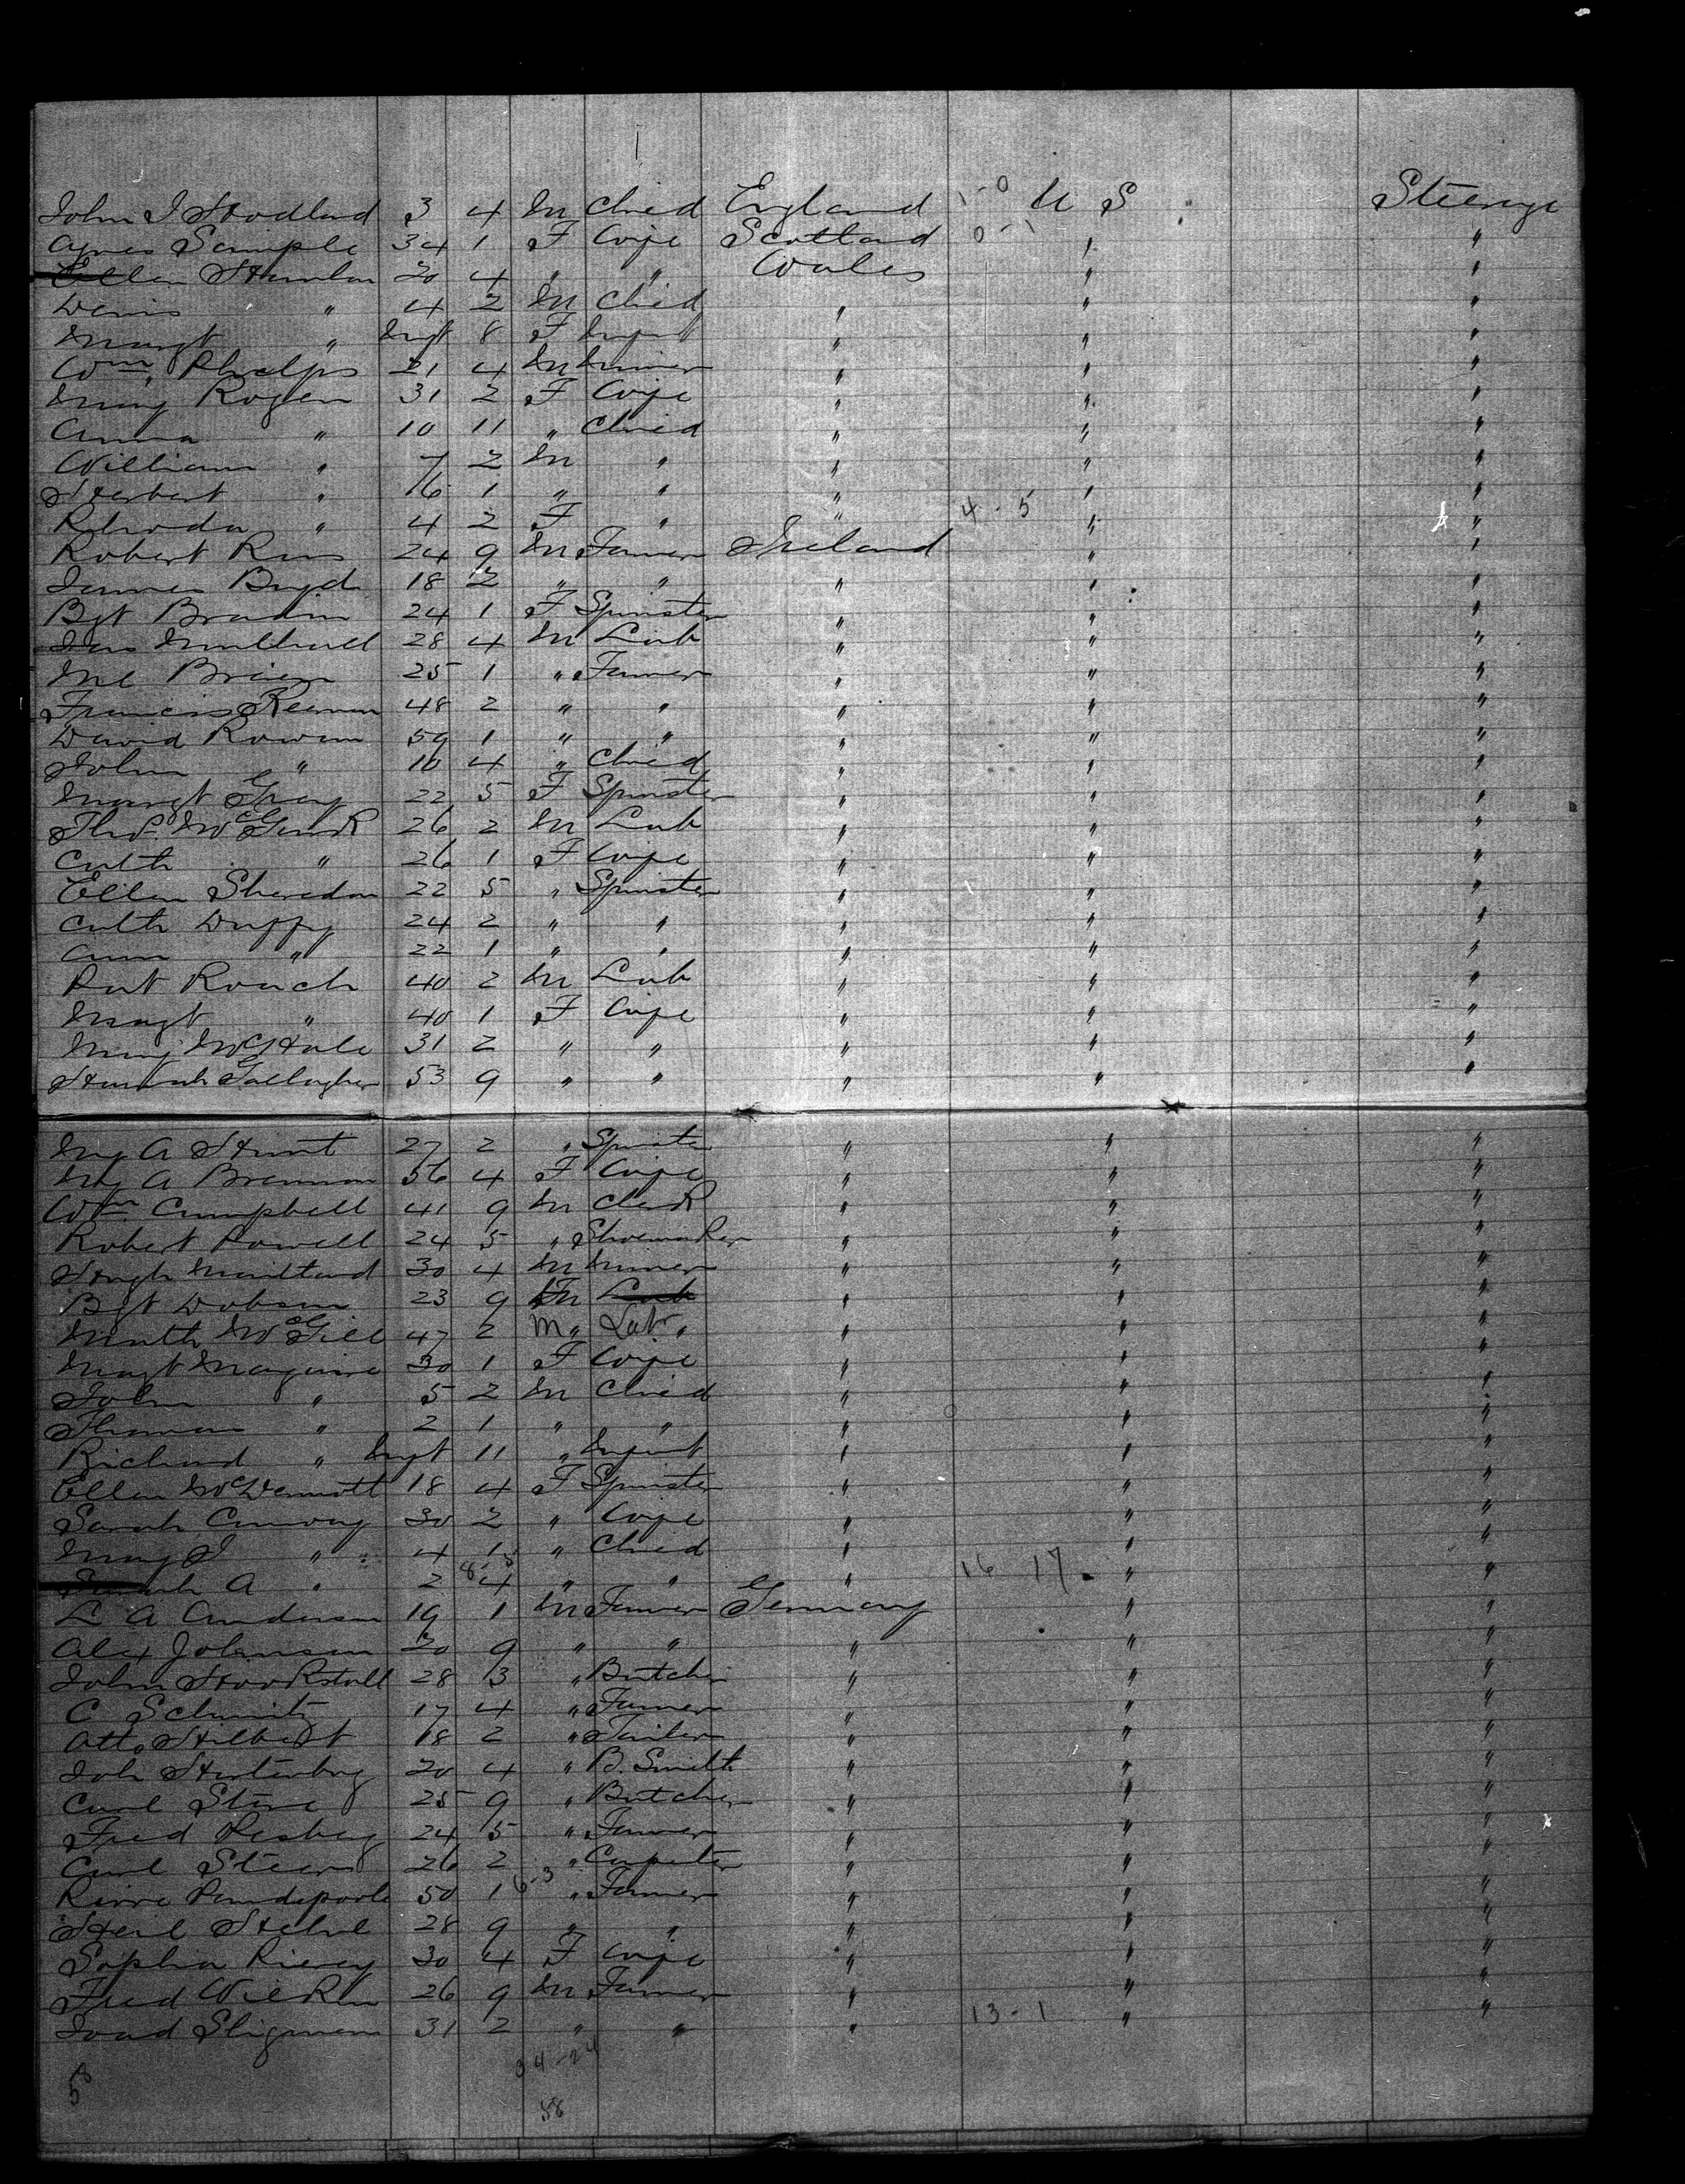 John J Stodlard 3 4 M Child England 1-0 U S Steerage
Agnes Sample 34 1 F Wife Scotland 0-1 " "
Ellen 4 " " Wales " "
4 2 M Child " " "
Margt " Inft 8 F Infant " " "
Wm Phelps 21 4 M Miner " " "
Mary Rogers 31 2 F Wife " " "
Anna " 10 11 " Child " " "
William " 7 2 M " " " "
Herbert " 1 " " " " "
Rhoda " 4 2 F " " 4-5 " "
Robert 24 9 M Farmer Ireland " "
James Boyd 18 2 " " " " "
Bgt 24 1 F Spinster " " "
28 4 M Lab " " "
25 1 " Farmer " " "
Francis 48 2 " " " " "
David Rowan 59 1 " " " " "
John " 10 4 " Child " " "
Margt Gray 22 5 F Spinster " " "
26 2 M Lab " " "
Cath " 26 1 F Wife " " "
Ellen Sheredan 22 5 " Spinster " " "
Cath Duffy 24 2 " " " " "
Ann " 22 1 " " " " "
Pat Roach 40 2 M Lab " " "
Margt " 40 1 F Wife " " "
Mary McHale 31 2 " " " " "
Hannah Gallagher 53 9 " " " " "
My A Hunt 27 2 " Spinster " " "
My A Brennan 56 4 F Wife " " "
Wm Campbell 41 9 M Clerk " " "
Robert Powell 24 5 " Shoemaker " " "
Hugh Maitland 30 4 M Miner " " "
Bgt Dobson 23 9 F Lab " " "
Math McGill 47 2 M " Lab " " " "
Margt Maguire 30 1 F Wife " " "
John " 5 2 M Child " " "
Thomas " 2 1 " " " " "
Richard " Inft 11 " Infant " " "
Ellen McDermott 18 4 F Spinster " " "
Sarah Conway 30 2 " Wife " " "
Mary J " 4 1 " Child " " "
A " 2 4 " " " 16 17 " "
L A Anderson 19 1 M Farmer Germany " "
Alex Johnson 9 " " " " "
John 28 3 " Butcher " " "
C Schmitz 17 4 " Farmer " " "
Otto Hilbert 18 2 " Tailor " " "
20 4 " B. Smith " " "
Carl 25 9 " Butcher " " "
Fred 24 5 " Farmer " " "
Carl 26 2 " Carpenter " " "
50 1 6-3 " Farmer " " "
28 9 " " " " "
Sophia 30 4 F Wife " " "
Fred Wilken 26 9 M Farmer " " "
31 2 " " " 13-1 " "
34-24
58
58